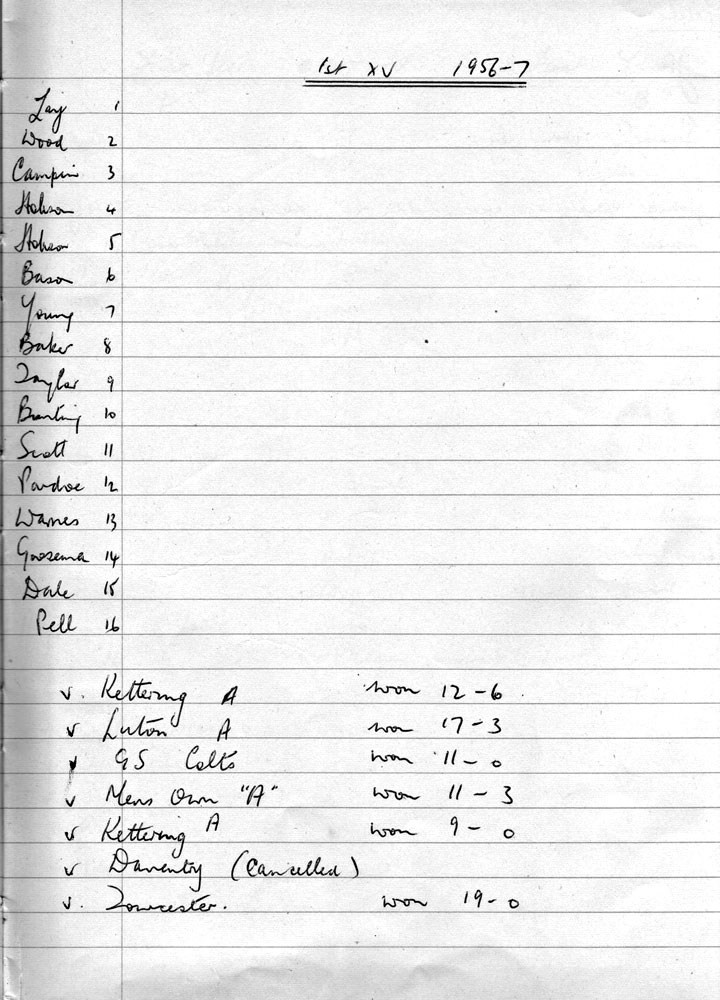 1st XV 1956-7
Lay 1
Wood 2
Campin 3
Hobson 4
Hobson 5
Bason 6
Young 7
Baker 8
Taylor 9
Bunting 10
Scott 11
Pardoe 12
Warnes 13
14
Dale 15
Pell 16
v. Kettering A won 12-6.
v Luton A won 17-3
v GS Colts won 11-0
v Mens Own "A" won 11-3
v Kettering A won 9-0
v Daventry (Cancelled)
v. Towcester. won 19-0